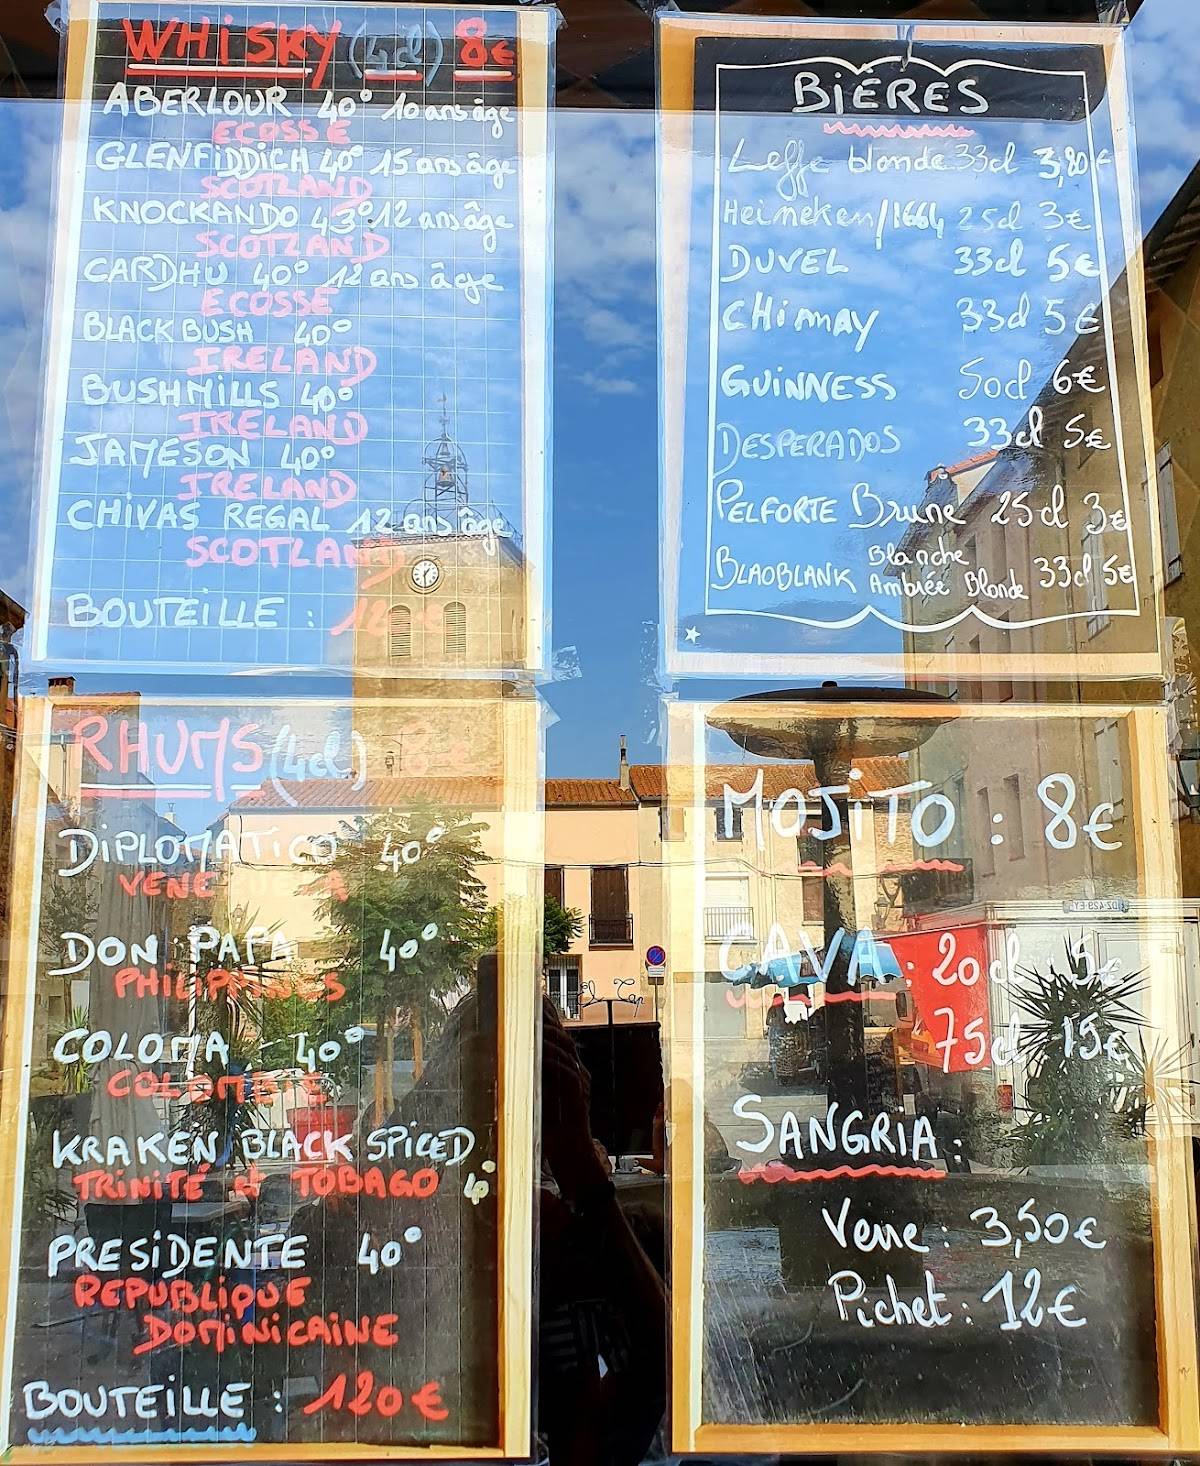 WHISKY (4cl) 8€
ABERLOUR 40° 10 ans âge
ECOSSE
GLENFIDDICH 40° 15 ans âge
SCOTLAND
KNOCKANDO 43° 12 ans âge
SCOTLAND
CARDHU 40° 12 ans âge
ECOSSE
BLACK BUSH 40°
IRELAND
BUSHMILLS 40°
IRELAND
JAMESON 40°
IRELAND
CHIVAS REGAL 12 ans âge
SCOTLAND
BOUTEILLE : 120€
BIÉRES
Leffe blonde 33cl 3,80€
Heineken/1664 25cl 3€
DUVEL 33cl 5€
CHIMAY 33cl 5€
GUINNESS 50cl 6€
DESPERADOS 33cl 5€
PELFORTE Brune 25cl 3€
BLAOBLANK Blanche Ambrée Blonde 33cl 5€
RHUMS (4cl) 8€
DIPLOMATICO 40°
DON PAPA 40°
PHILIPPINES
COLOMA - 40°
COLOMBIE
KRAKEN BLACK SPICED
TRINITÉ et TOBAGO 40°
PRESIDENTE 40°
REPUBLIQUE
DOMINICAINE
BOUTEILLE : 120€
MOJITO : 8€
CAVA : 20cl 5€
75cl 15€
SANGRIA :
Verre : 3,50€
Pichet : 12€